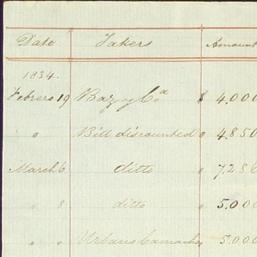 Date Takers Amount
1834.
Febrero 19 Bazo y Ca $ 4,000
" Bill discounted " 4,850
March 6 ditto " 7,286
" 8 ditto " 5,000
" " Urbano Camacho " 5,000